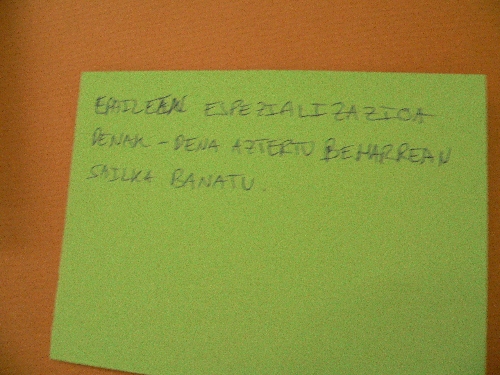 EPAILEEN ESPEZIALIZAZIOA
DENAK - DENA AZTERTU BEHARREAN
SAILKA BANATU.